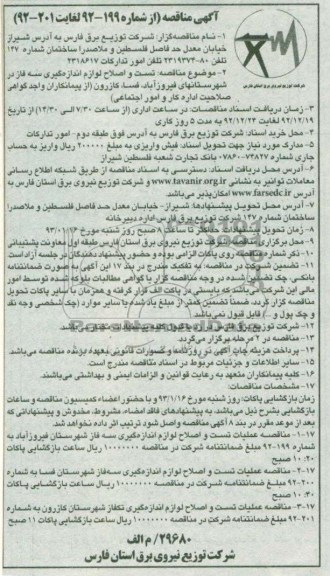 آگهی مناقصه (از شماره ۱۹۹-۹۲ لغایت ۲۰۱-۹۲)
۱- نام مناقصه‌گزار: شرکت توزیع برق فارس به آدرس شیراز
خیابان معدل حد فاصل فلسطین و ملاصدرا ساختمان شماره ۱۴۷
تلفن ۸۰-۲۳۱۹۳۷۴ تلفن امور تدارکات ۲۳۱۸۶۱۷
۲- موضوع مناقصه: تست و اصلاح لوازم اندازه‌گیری سه فاز در
شهرستانهای فیروزآباد، فسا، کازرون (از پیمانکاران واجد گواهی
صلاحیت اداره کار و امور اجتماعی)
۳- زمان دریافت اسناد مناقصات: در ساعت اداری (از ساعت ۷/۳۰ الی ۱۴/۳۰) از تاریخ
۹۲/۱۲/۱۹ لغایت ۹۲/۱۲/۲۴ به مدت ۵ روز کاری
۴- محل خرید اسناد: شرکت توزیع برق فارس به آدرس فوق طبقه دوم- امور تدارکات
۵- مدارک مورد نیاز جهت تحویل اسناد: فیش واریزی به مبلغ ۲۰۰۰۰۰ ریال واریز به حساب
جاری شماره ۰۷۸۶۰۰۷۳۸۲۷ بانک تجارت شعبه فلسطین شیراز
۶- آدرس محل دریافت اسناد: دسترسی به اسناد مناقصه از طریق شبکه اطلاع رسانی
معاملات توانیر به نشانی www.tavanir.org.ir و شرکت توزیع نیروی برق استان فارس به
آدرس www.farsedc.ir امکان‌پذیر می‌باشد
۷- آدرس محل تحویل پیشنهادها: شیراز- خیابان معدل حد فاصل فلسطین و ملاصدرا
ساختمان شماره ۱۴۷ شرکت توزیع برق فارس- اداره دبیرخانه
۸- زمان تحویل پیشنهادات حداکثر تا ساعت ۸ صبح روز شنبه مورخ ۹۳/۰۱/۱۶
۹- محل برگزاری مناقصه: شرکت توزیع نیروی برق استان فارس طبقه اول معاونت پشتیبانی
۱۰- ذکر شماره مناقصه روی پاکات الزامی بوده و حضور پیشنهاد دهندگان در جلسه آزاد است.
۱۱- تضمین شرکت در مناقصه: به تفکیک مندرج در بند ۱۷ این آگهی به صورت ضمانتنامه
بانکی، چک تضمین شده در وجه مناقصه گزار یا گواهی مطالبات بلوکه شده توسط امور
مالی این شرکت می‌باشد که بایستی در پاکت الف قرار گرفته و همزمان با سایر پاکات تحویل
مناقصه گزار گردد. ضمناً تضمین کمتر از مبلغ یاد شده یا سایر موارد (چک شخصی وجه نقد
و چک پول و ) قابل قبول نمی‌باشد.
۱۲- شرکت توزیع برق فارس در رد یا قبول کلیه پیشنهادات مختار می‌باشد.
۱۳- مناقصه در ۲ مرحله برگزار می‌گردد.
۱۴- پرداخت هزینه چاپ آگهی در روزنامه و کسورات قانونی بعهده برنده مناقصه می‌باشد.
۱۵- سایر اطلاعات و جزئیات مربوط در اسناد مناقصه مندرج است.
۱۶- کلیه پیمانکاران متعهد به رعایت قوانین و الزامات ایمنی و بهداشتی می‌باشند.
۱۷- مشخصات مناقصات:
زمان بازگشایی پاکات: روز شنبه مورخ ۹۳/۱/۱۶ و با حضور اعضاء کمیسیون مناقصه و ساعات
بازگشایی بشرح ذیل می‌باشد. به پیشنهادهای فاقد امضاء، مشروط، مخدوش و پیشنهاداتی که
بعد از موعد مقرر در بند ۸ آگهی مناقصه واصل شود ترتیب اثر داده نخواهد شد.
۱-۱۷- مناقصه عملیات تست و اصلاح لوازم اندازه‌گیری سه فاز شهرستان فیروزآباد به
شماره ۱۹۹-۹۲ مبلغ ضمانتنامه شرکت در مناقصه ۱۰۰۰۰۰۰۰ ریال ساعت بازگشایی پاکات
۱۰:۲۰ صبح
۲-۱۷- مناقصه عملیات تست و اصلاح لوازم اندازه‌گیری سه فاز شهرستان فسا به شماره
۲۰۰-۹۲ مبلغ ضمانتنامه شرکت در مناقصه ۱۰۰۰۰۰۰۰ ریال ساعت بازگشایی پاکات
۱۰:۴۰ صبح
۳-۱۷- مناقصه عملیات تست و اصلاح لوازم اندازه‌گیری تکفاز شهرستان کازرون به شماره
۲۰۱-۹۲ مبلغ ضمانتنامه شرکت در مناقصه ۱۰۰۰۰۰۰۰ ریال ساعت بازگشایی پاکات ۱۱ صبح
۲۹۶۸۰/ م الف
شرکت توزیع نیروی برق استان فارس